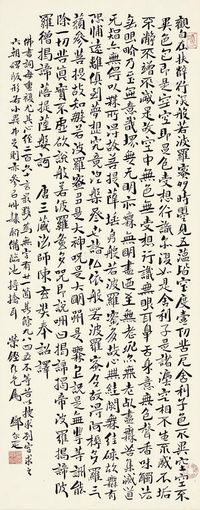 觀自在菩薩行深般若波羅蜜多時照見五蘊皆空度一切苦厄舍利子色不異空空不
異色色即是空空即是色受想行識亦復如是舍利子是諸法空相不生不滅不垢
不淨不增不減是故空中無色無受想行識無眼耳鼻舌身意無色聲香味觸法
無眼界乃至無意識界無無明亦無無明盡乃至無老死亦無老死盡無苦集滅道
無智亦無得以無所得故菩提薩埵依般若波羅蜜多故心無罣礙無罣礙故無有
恐怖遠離顛倒夢想究竟涅槃三世諸佛依般若波羅蜜多故得阿耨多羅三
藐三菩提故知般若波羅蜜多是大神咒是大明咒是無上咒是無等等咒能
除一切苦真實不虛故說般若波羅蜜多咒即說咒曰揭諦揭諦波羅揭諦波
羅僧揭諦菩提薩婆訶 唐三藏法師陳玄奘奉詔譯